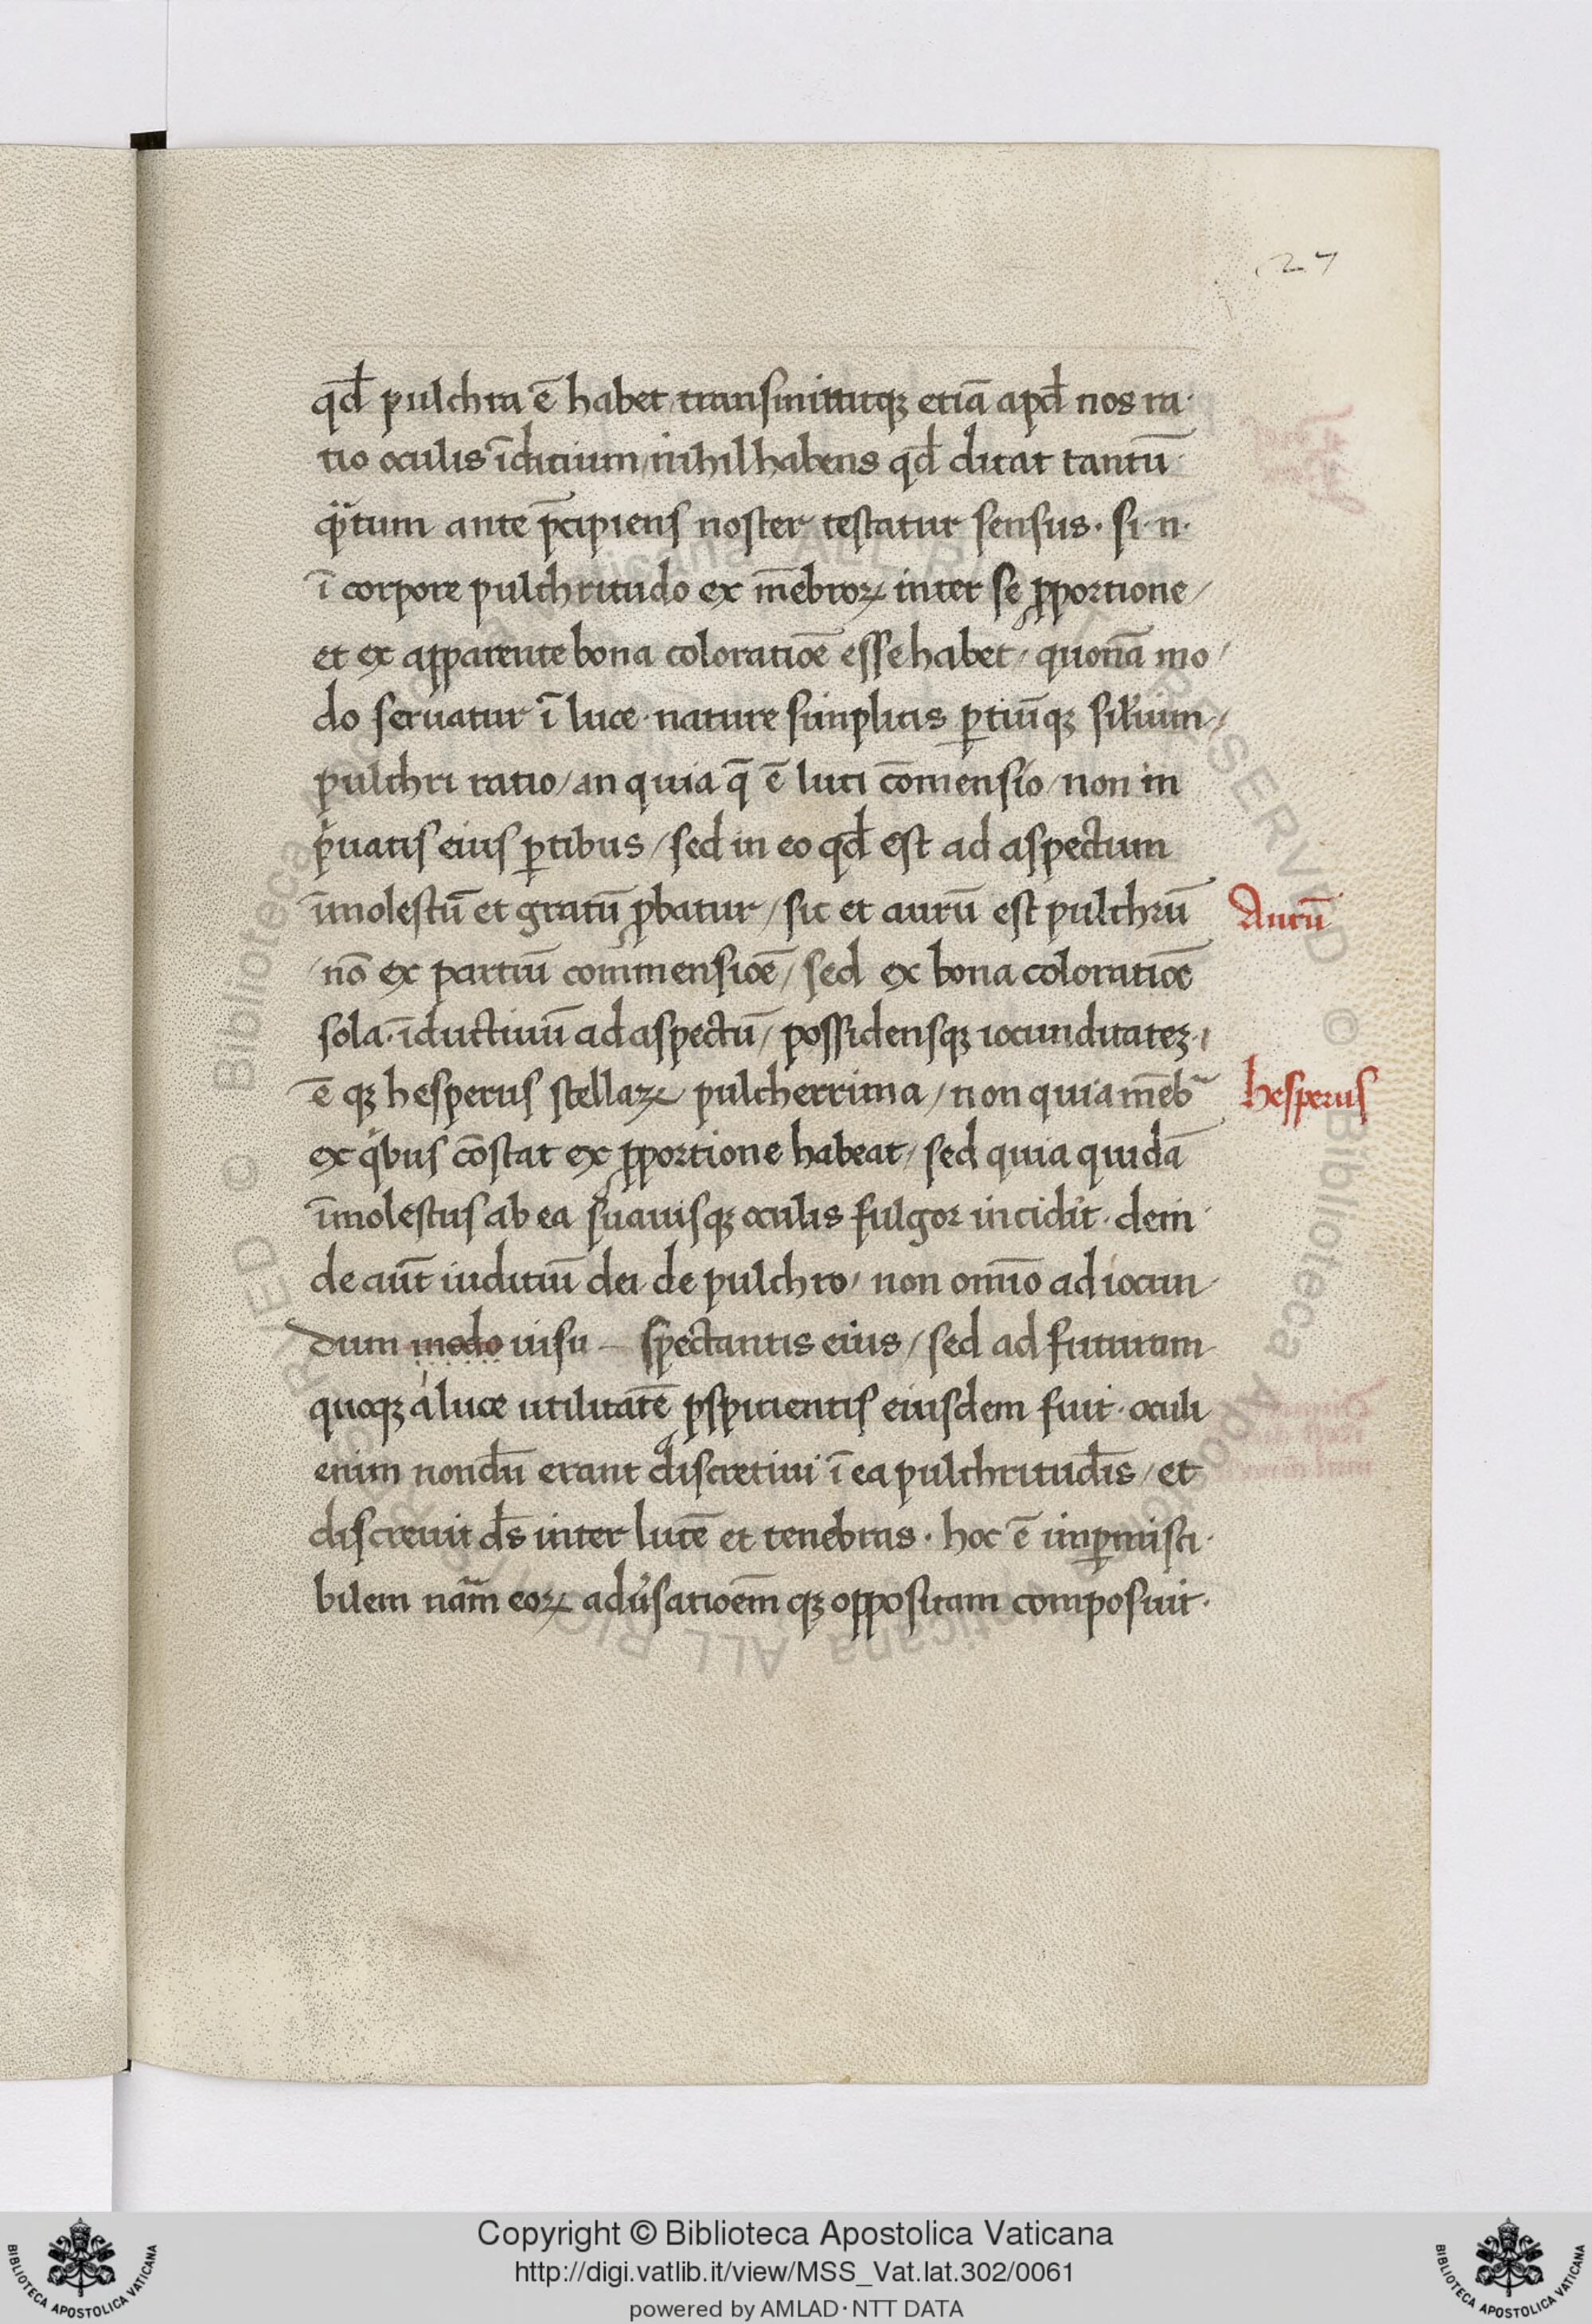 27
qd̄ pulchra ē habet / transmittitqꝫ etiā apd̄ nos ra·
tio oculis īditium / nihil habens qd̄ dicat tantū
qᵃtum ante p̄cipiens noster testatur sensus · si · n ·
ī corpore pulchritudo ex mēbroꝝ inter se ꝓportione /
et ex apparente bona coloratiōe esse habet / quonā mo /
do seruatur ī luce · nature simplicis ꝑtiūqꝫ sil'ium /
pulchri ratio / an quia q̄ ē luci cōmensio / non in
pⁱuatis eius ꝑtibus / sed in eo qd̄ est ad aspectum
īmolestū et gratū ꝓbatur / sic et aurū est pulchrū
Aurū
/ nō ex partiū commensiōe / sed ex bona coloratiōe
sola · īductiuū ad aspectū / possidensqꝫ iocunditateꝫ · /
ē qꝫ hesperus stellaꝝ pulcherrima / non quia mēbᵃ
hesperus
ex qⁱbus cōstat ex ꝓportione habeat / sed quia quidā
īmolestus ab ea suauisqꝫ oculis fulgor incidit · dein ·
de aūt iuditiū dei de pulchro / non omīo ad iocun /
dum modo uisu – spectantis eius / sed ad futuram
quoqꝫ a luce utilitatē ꝓspicientis eiusdem fuit · oculi
enim nondū erant discretiui ī ea pulchritudīs / et
discreuit ds̄ inter lucē et tenebras · hoc ē inꝑmisci ·
bilem nām eoꝝ adu'satioēm qꝫ oppositam composuit ·
Copyright © Biblioteca Apostolica Vaticana
http://digi.vatlib.it/view/MSS_Vat.lat.302/0061
powered by AMLAD · NTT DATA
BIBLIOTECA APOSTOLICA VATICANA
BIBLIOTECA APOSTOLICA VATICANA